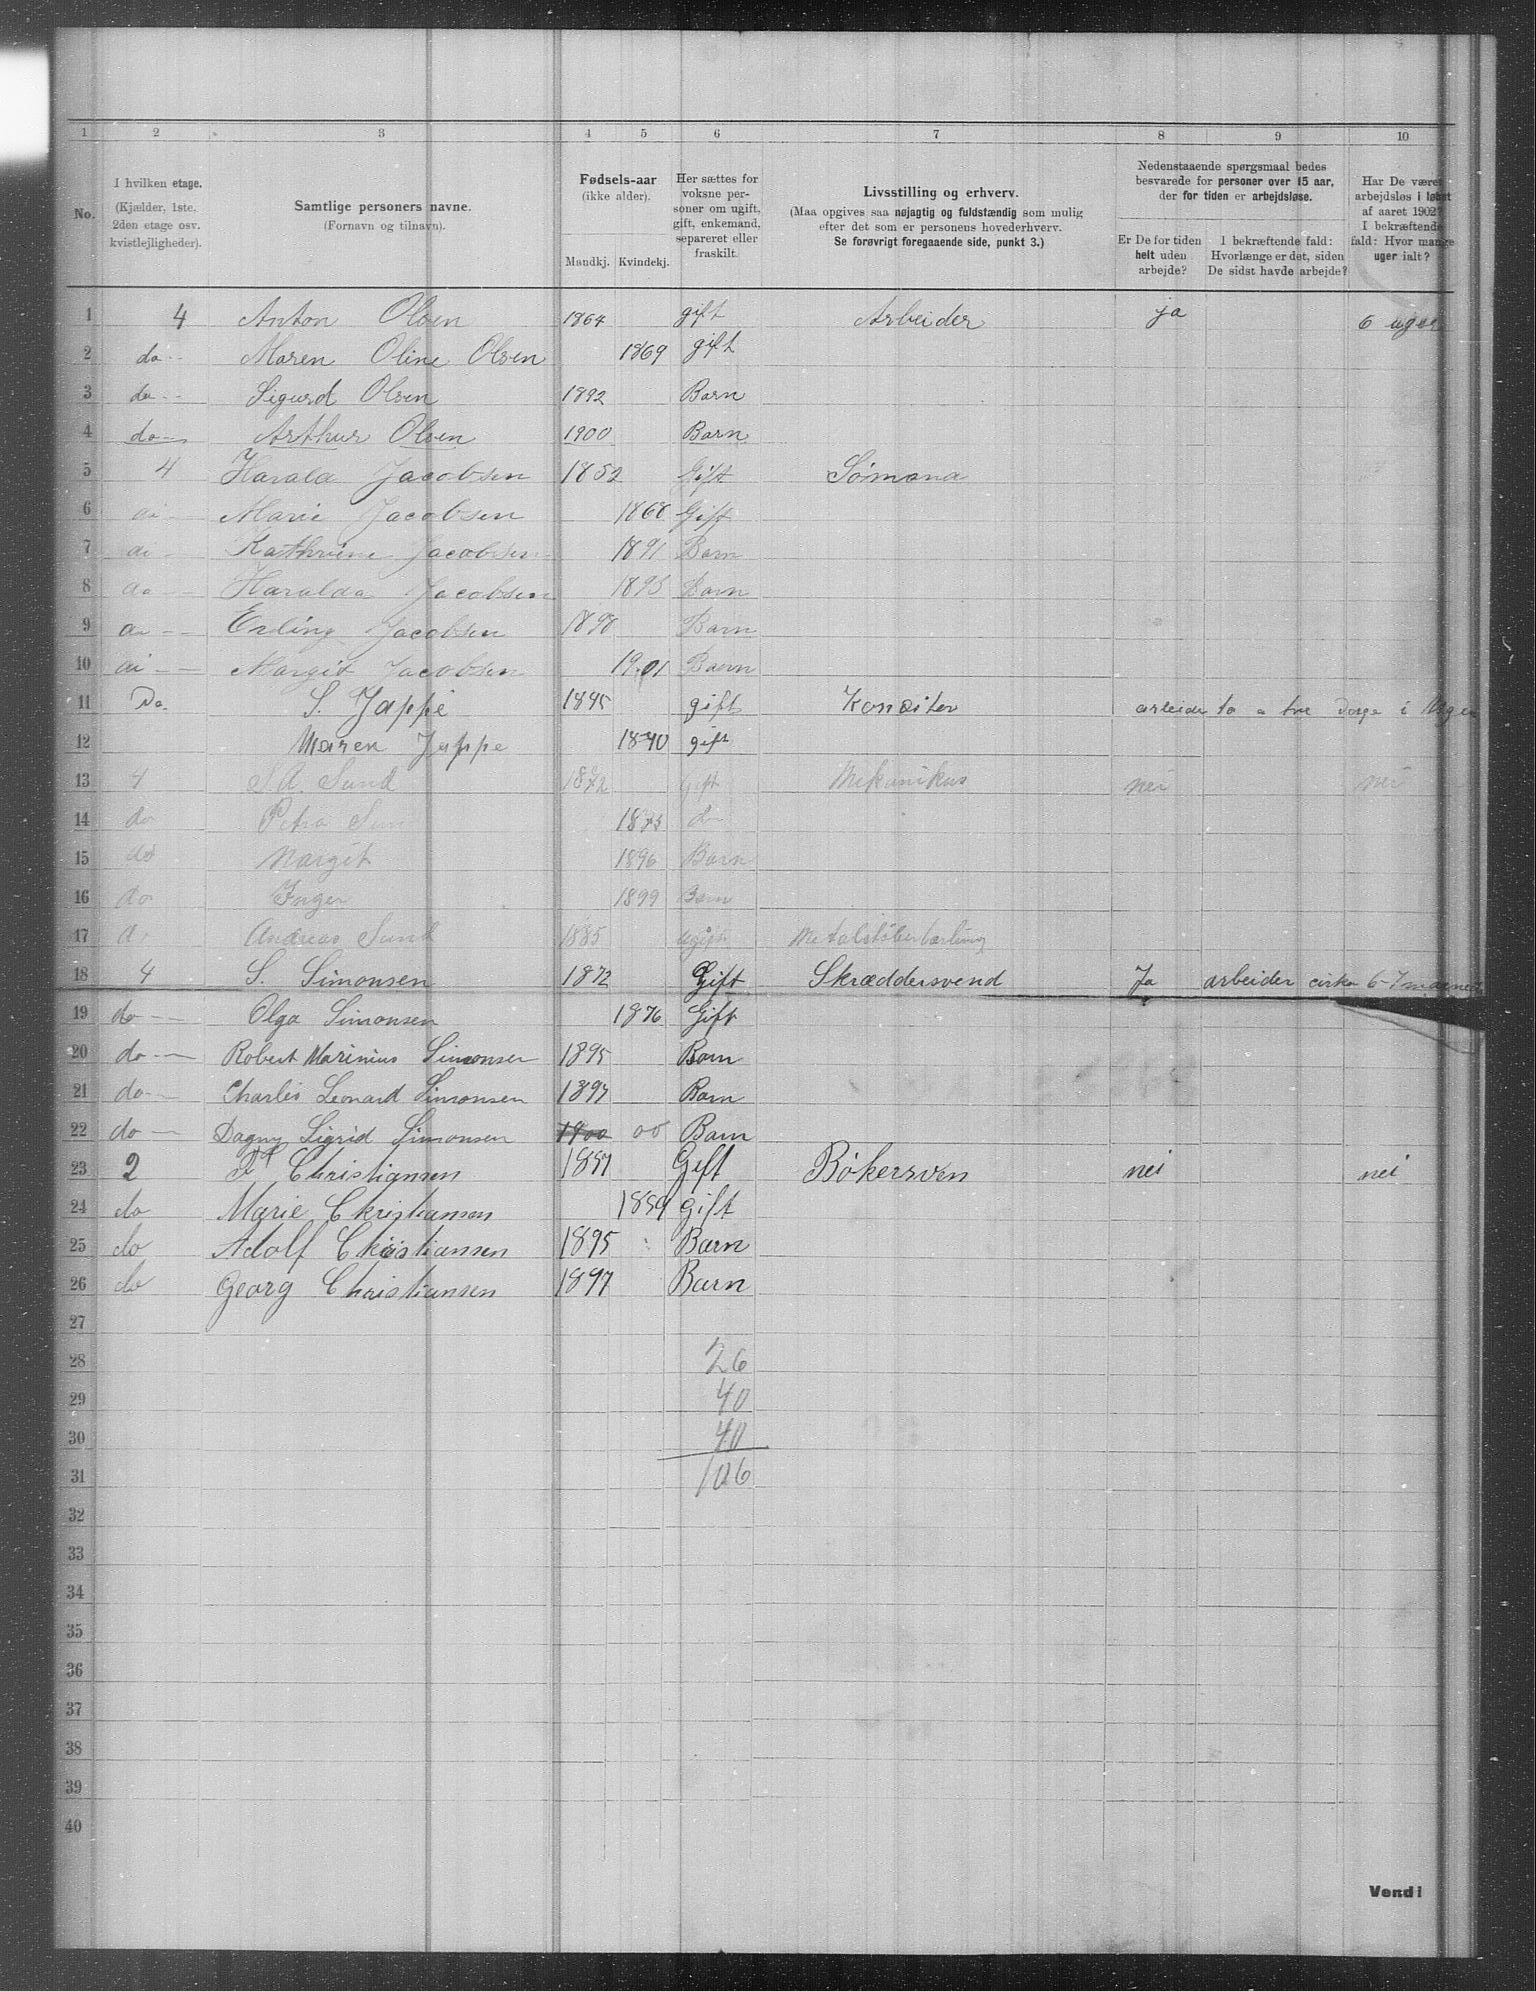 1 2 3 4 5 6 7 8 9 10
No.
I hvilken etage.
(Kjælder, 1ste.
2den etage osv.
kvistlejligheder).
Samtlige personers navne.
(Fornavn og tilnavn).
Fødsels-aar
(ikke alder).
Mandkj. Kvindekj.
Her sættes for
voksne per-
soner om ugift,
gift, enkemand,
separeret eller
fraskilt.
Livsstilling og erhverv.
(Maa opgives saa nøjagtig og fuldstændig som mulig
efter det som er personens hovederhverv.
Se forøvrigt foregaaende side, punkt 3.)
Nedenstaaende spørgsmaal bedes
besvarede for personer over 15 aar,
der for tiden er arbejdsløse.
Er De for tiden
helt uden
arbejde?
I bekræftende fald:
Hvorlænge er det, siden
De sidst havde arbejde?
Har De været
arbejdsløs i løbet
af aaret 1902?
I bekræftende
fald: Hvor mange
uger ialt?
1 4 Anton Olsen 1864 gift Arbeider ja 6 uger
2 do Maren Oline Olsen 1869 gift
3 do Sigurd Olsen 1892 Barn
4 do Arthur Olsen 1900 Barn
5 4 Harald Jacobsen 1852 Gift Sømand
6 do Marie Jacobsen 1868 Gift
7 do Kathrine Jacobsen 1891 Barn
8 do Haralda Jacobsen 1895 Barn
9 do Erling Jacobsen 1898 Barn
10 do Margit Jacobsen 1901 Barn
11 Do. S. Jappe 1845 gift Konditor arbeider to a tre Dage i Ugen
12 Maren Jappe 1840 gift
13 4 S.A. Sund 1872 gift Mekanikus nei nei
14 do Petra Sun 1875 do
15 do Margit 1896 Barn
16 do Inger 1899 Barn
17 do Andreas Sund 1885 ugift Metalstøberlærling
18 4 S. Simonsen 1872 Gift Skræddersvend Ja arbeider cirka 6-7 maaned
19 do Olga Simonsen 1876 Gift
20 do Robert Marinius Simonsen 1895 Barn
21 do Charles Leonard Simonsen 1897 Barn
22 do Dagny Sigrid Simonsen 1900 00 Barn
23 2 Christiansen 1857 Gift Bøkersven nei nei
24 do Marie Christiansen 1859 gift
25 do Adolf Christiansen 1895 Barn
26 do Georg Christiansen 1897 Barn
27
28 26
29 40
30 40
31 106
32
33
34
35
36
37
38
39
40
Vend!